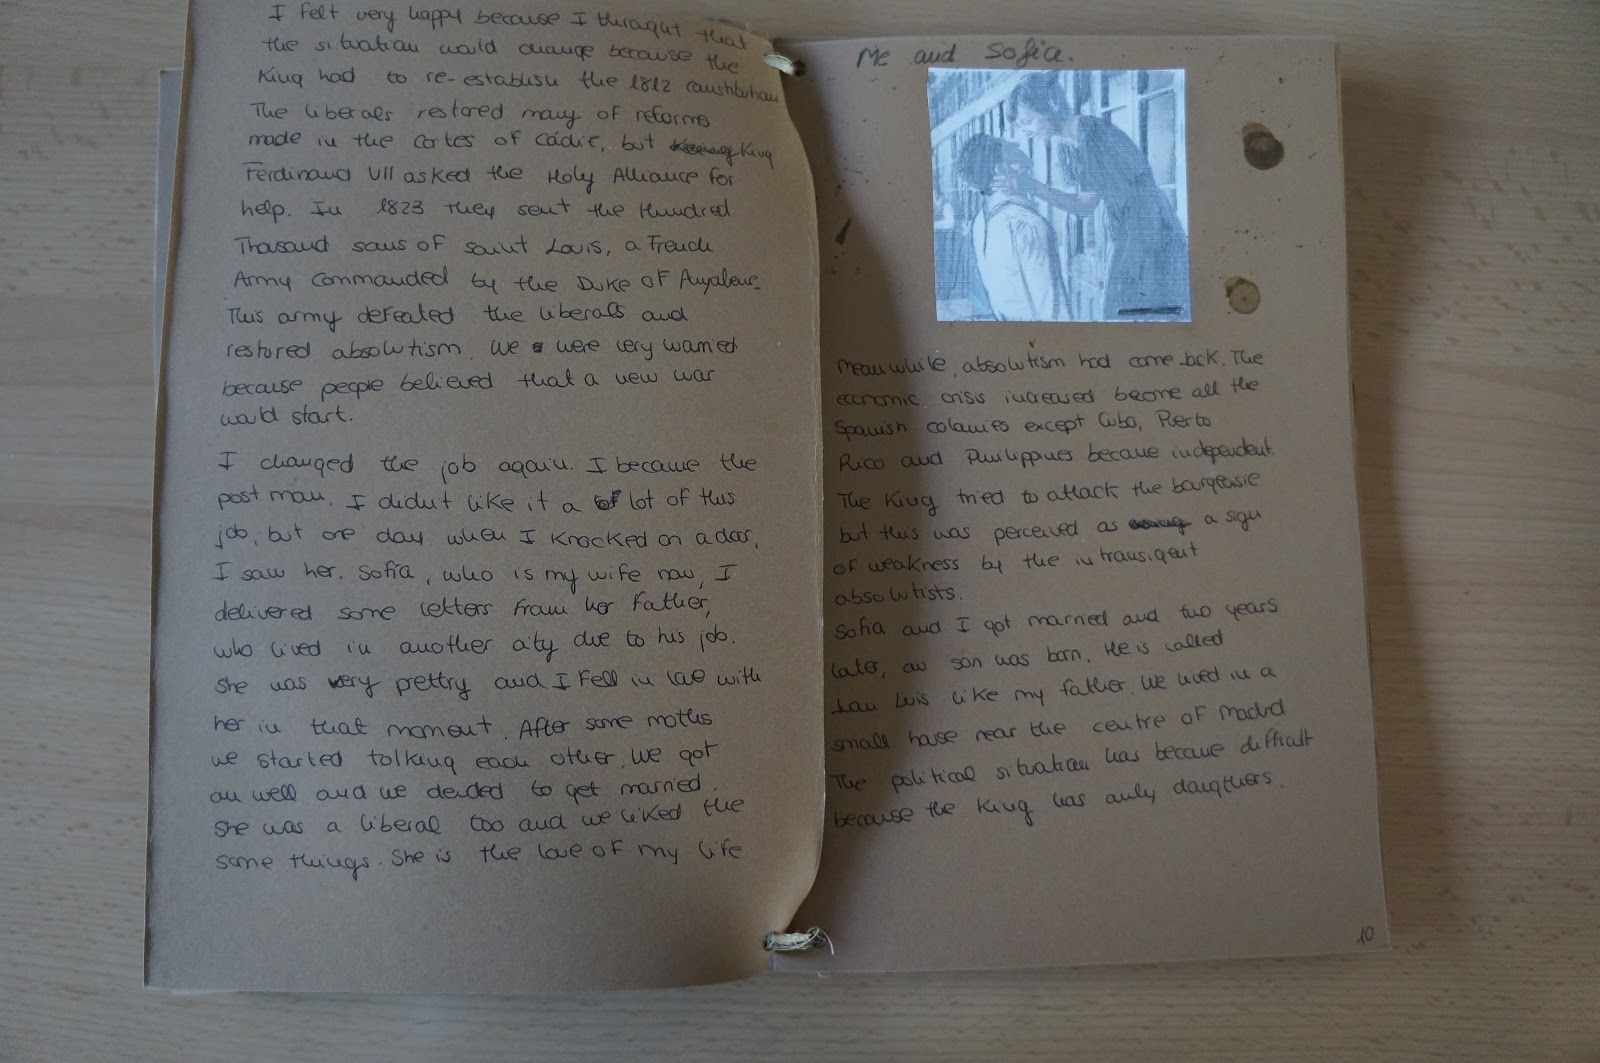 I felt very happy because I throught that
the situation would change because the
King had to re-establish the 1812 constitution
The liberals restored many of reforms
made in the Cortes of Cádiz, but King
Ferdinand VII asked the Holy Alliance for
help. In 1823 they sent the Hundred
Thosand sons of saint Louis, a French
Army commanded by the Duke of
This army defeated the liberals and
restored absolutism. We were very worried
because people believed that a new war
would start.
I changed the job again. I became the
post man. I didn't like it a lot of this
job, but one day when I knocked on a door,
I saw her. Sofía, who is my wife now, I
delivered some letters from her father,
who lived in another city due to his job.
She was very prettry and I fell in love with
her in that moment. After some moths
we started tolking each other. We got
on well and we decided to get married.
She was a liberal too and we liked the
same things. She is the love of my life
Me and Sofia.
Meanwhile, absolutism had come bck. The
economic crisis increased become all the
Spanish colonies except Cuba, Puerto
Rico and Philippines became independent.
The King tried to attack the bourgeoisie
but this was perceived as a sign
of weakness by the intransigent
absolutists.
Sofia and I got married and two years
later, our son was born. He is called
Luis like my father. We lived in a
small house near the centre of Madrid
The political situation has became difficult
because the King has only daughters.
10